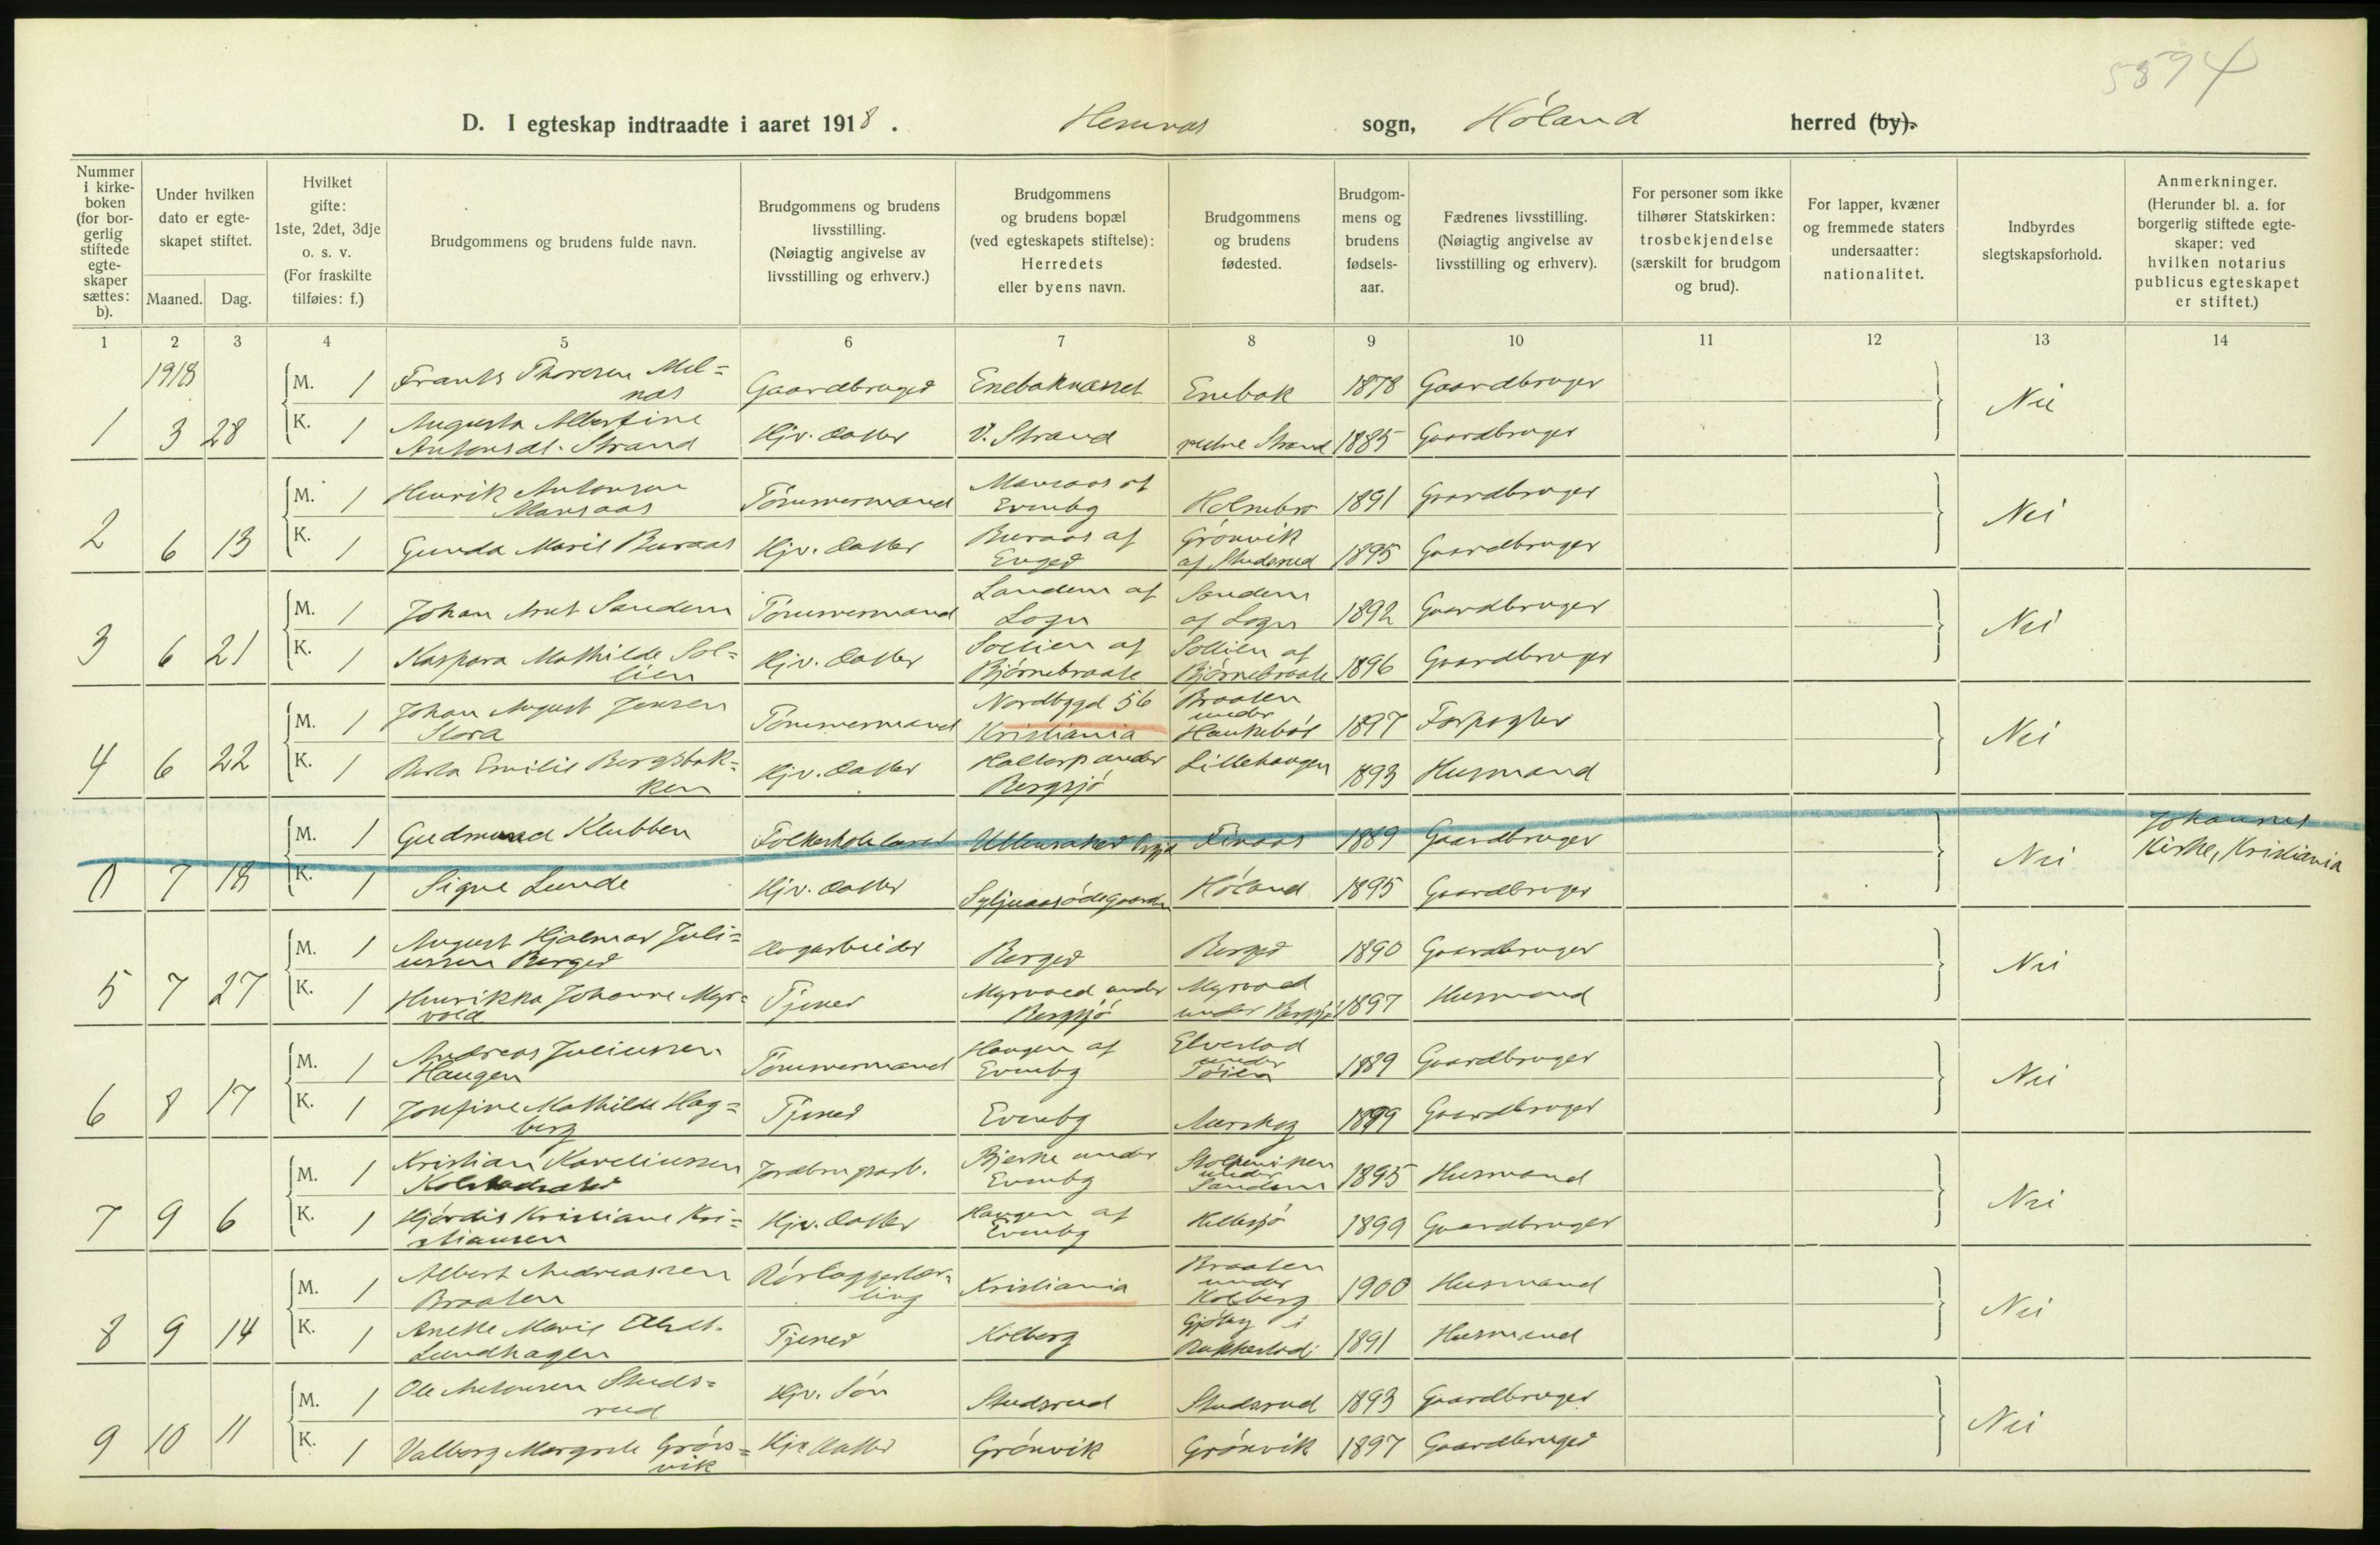 5894
D. I egteskap indtraadte i aaret 1918. Hemnæs sogn, Høland herred (by).
Nummer i kirkeboken (for borgerlig stiftede egteskaper sættes: b).
Under hvilken dato er egteskapet stiftet.
Maaned. Dag.
Hvilket gifte: 1ste, 2det, 3dje o. s. v. (For fraskilte tilføies: f.)
Brudgommens og brudens fulde navn.
Brudgommens og brudens livsstilling. (Nøiagtig angivelse av livsstilling og erhverv.)
Brudgommens og brudens bopæl (ved egteskapets stiftelse): Herredets eller byens navn.
Brudgommens og brudens fødested.
Brudgommens og brudens fødselsaar.
Fædrenes livsstilling. (Nøiagtig angivelse av livsstilling og erhverv).
For personer som ikke tilhører Statskirken: trosbekjendelse (særskilt for brudgom og brud).
For lapper, kvæner og fremmede staters undersaatter: nationalitet.
Indbyrdes slegtskapsforhold.
Anmerkninger. (Herunder bl. a. for borgerlig stiftede egteskaper: ved hvilken notarius publicus egteskapet er stiftet.)
1 2 3 4 5 6 7 8 9 10 11 12 13 14
1918
M. 1 Frants Thoresen Melnæs Gaardbruger Enebaknæsset Enebak 1878 Gaardbruger
1 3 28 K. 1 Augusta Albertine Antonsdt. Strand Hjv. datter V. Strand vestre Strand 1885 Gaardbruger Nei
M. 1 Henrik Antonsen Mansaas Tømmermand Mansaas af Evenby 1891 Gaardbruger
2 6 13 K. 1 Gunda Marie Buraas Hjv. datter Buraas af Enger Grønvik af Studsrud 1895 Gaardbruger Nei
M. 1 Johan Arnt Sandem Tømmermand Sandem af Logn Sandem af Logn 1892 Gaardbruger
3 6 21 K. 1 Kaspara Mathilde Sollien Hjv. datter Sollien af Bjørnebraate Sollien af Bjørnebraate 1896 Gaardbruger Nei
M. 1 Johan August Jensen Slora Tømmermand Nordbygd 56 Kristiania Braaten under Haukebøl 1897 Forpagter
4 6 22 K. 1 Berta Emilie Bergsbakken Hjv. datter Hallerp under Bergsjø Lillehaugen 1893 Husmand Nei
M. 1 Gudmund Klubben Folkeskolelærer Ullensaker 1889 Gaardbruger Johannes Kirke, Kristiania
0 7 18 K. 1 Signe Lunde Hjv. datter Syljuaasødegaarden Høland 1895 Gaardbruger Nei
M. 1 August Hjalmar Juliussen Berger Berger Berger 1890 Gaardbruger
5 7 27 K. 1 Henrikka Johanne Myrvold Tjener Myrvold under Bergsjø Myrvold under Bergsjø 1897 Husmand Nei
M. 1 Andreas Juliussen Haugen Tømmermand Haugen af Evenby Elvestad under Tøien 1889 Gaardbruger
6 8 17 K. 1 Josefine Mathilde Hagberg Tjener Evenby Aurskog 1899 Gaardbruger Nei
M. 1 Kristian Kareliussen Jordbrugsarb. Bjerke under Evenby under Sandem 1895 Husmand
7 9 6 K. 1 Hjørdis Kristiane Kristiansen Hjv. datter Haugen af Evenby Kollesjø 1899 Gaardbruger Nei
M. 1 Albert Andreassen Braaten Rørlæggerlærling Kristiania Braaten under Kolberg 1900 Husmand
8 9 14 K. 1 Anette Marie Olsdt. Lundhagen Tjener Kolberg Gjølby i Rakkestad 1891 Husmand Nei
M. 1 Ole Antonsen Studsrud Hjv. Søn Studsrud Studsrud 1893 Gaardbruger
9 10 11 K. 1 Valborg Margrete Grønvik Hjv datter Grønvik Grønvik 1897 Gaardbruger Nei